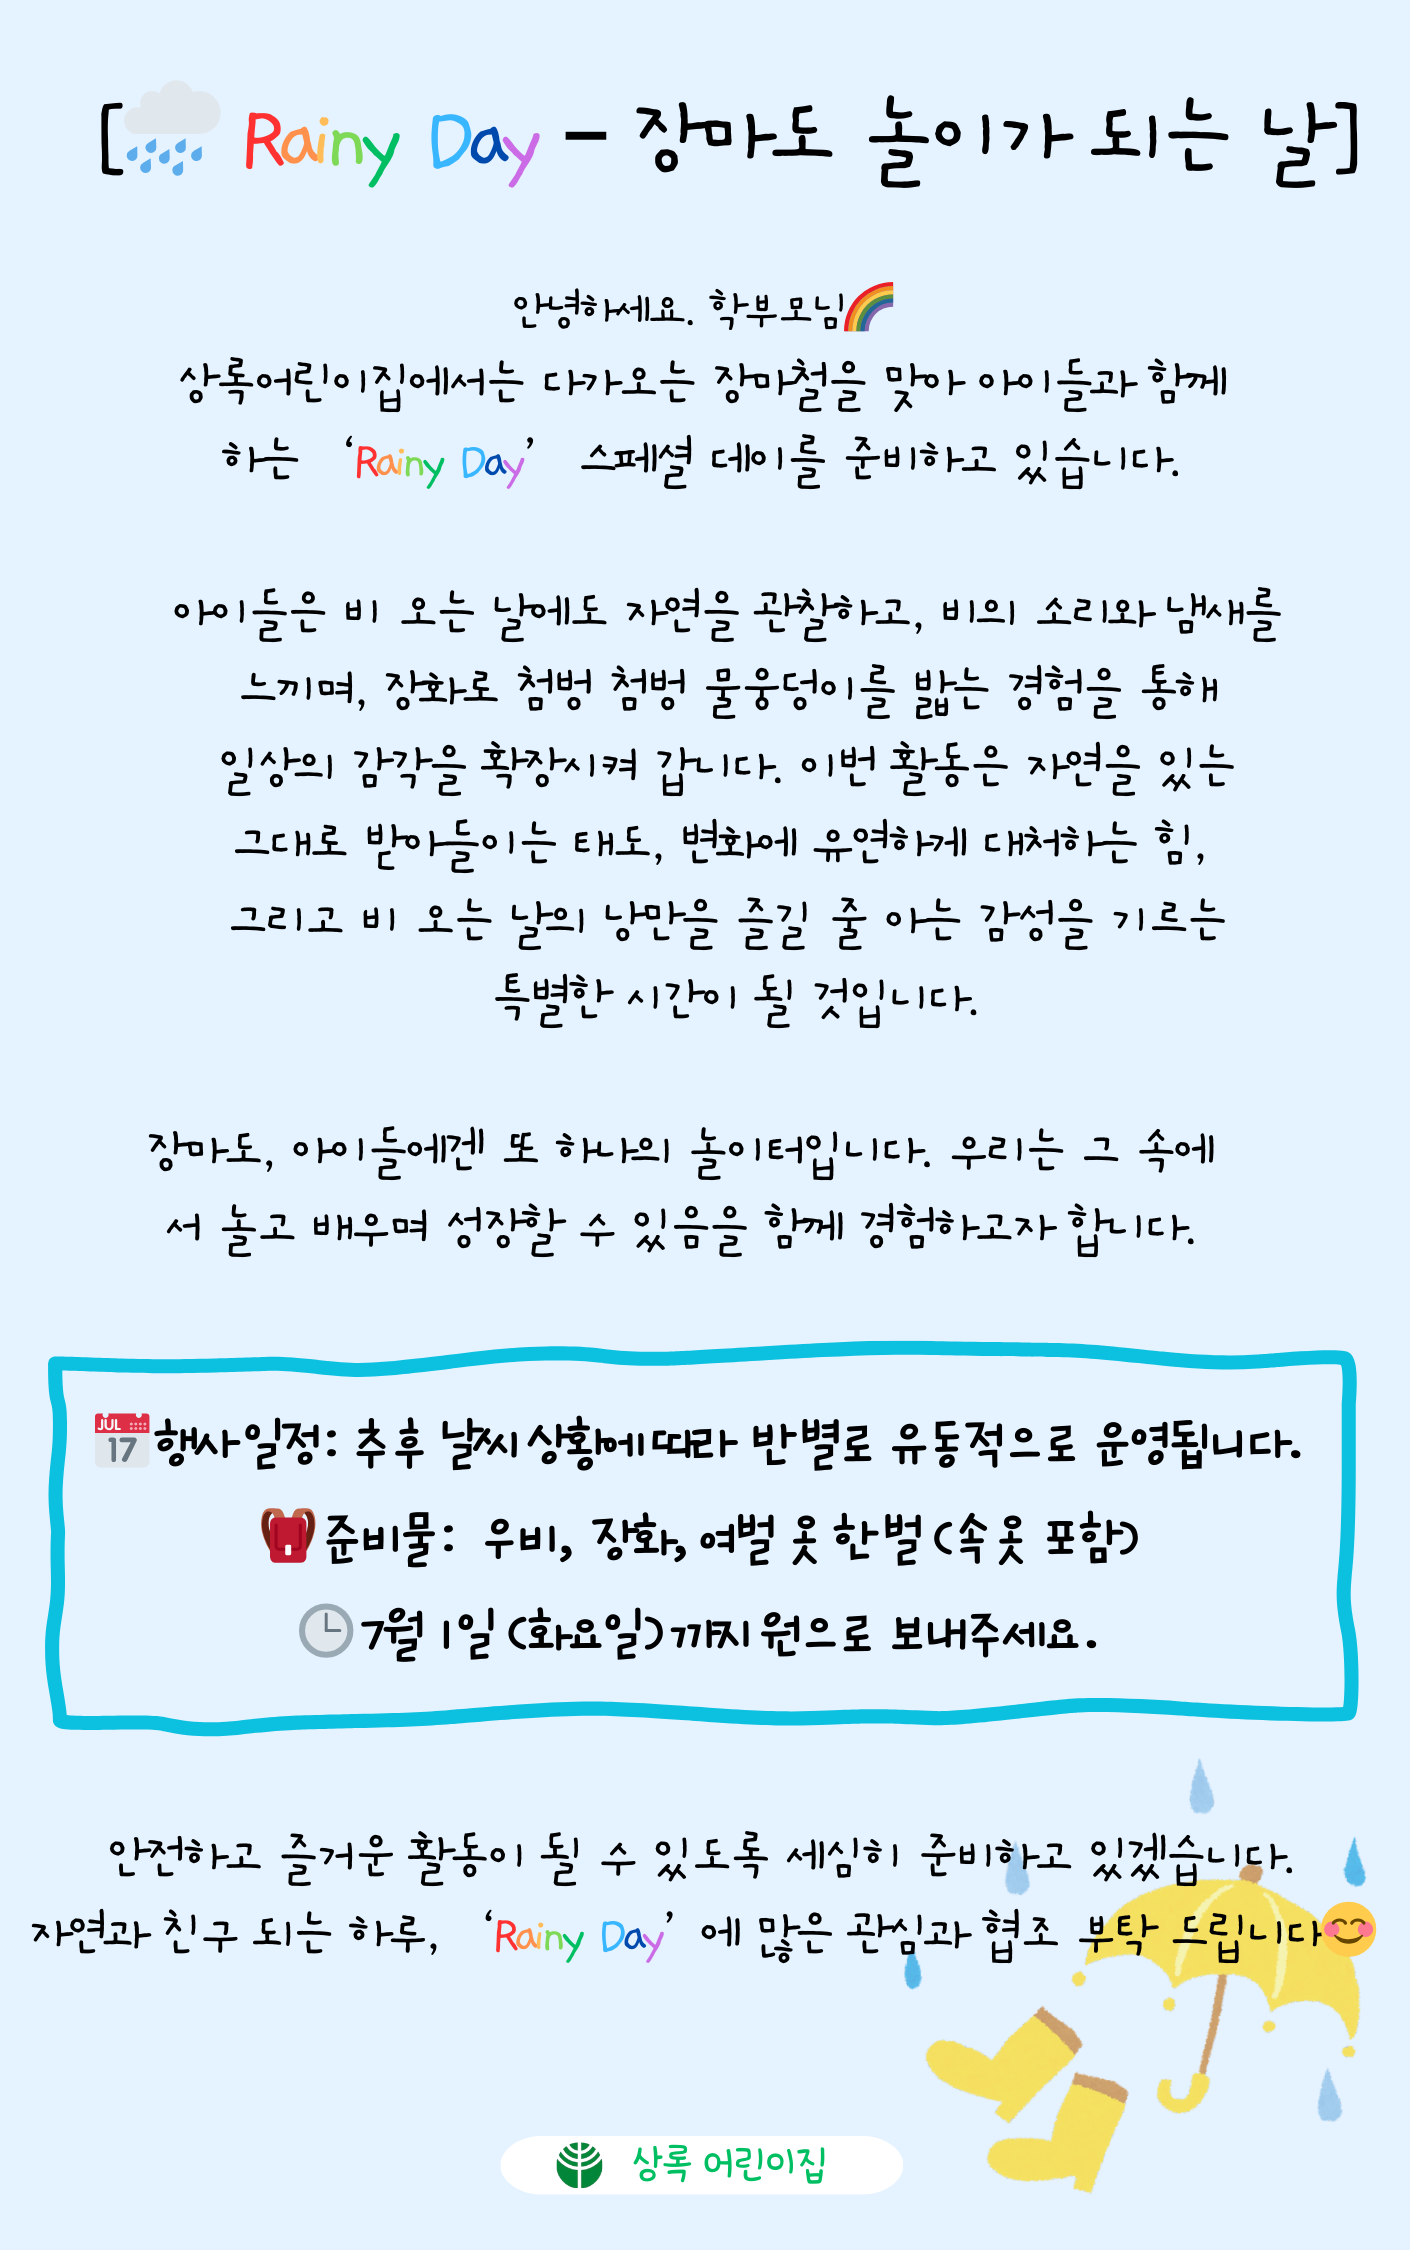 [🌧 Rainy Day - 장마도 놀이가 되는 날]
안녕하세요. 학부모님🌈
상록어린이집에서는 다가오는 장마철을 맞아 아이들과 함께
하는 ‘Rainy Day’ 스페셜 데이를 준비하고 있습니다.
아이들은 비 오는 날에도 자연을 관찰하고, 비의 소리와 냄새를
느끼며, 장화로 첨벙 첨벙 물웅덩이를 밟는 경험을 통해
일상의 감각을 확장시켜 갑니다. 이번 활동은 자연을 있는
그대로 받아들이는 태도, 변화에 유연하게 대처하는 힘,
그리고 비 오는 날의 낭만을 즐길 줄 아는 감성을 기르는
특별한 시간이 될 것입니다.
장마도, 아이들에겐 또 하나의 놀이터입니다. 우리는 그 속에
서 놀고 배우며 성장할 수 있음을 함께 경험하고자 합니다.
JUL 17 행사일정: 추후 날씨 상황에 따라 반별로 유동적으로 운영됩니다.
🎒준비물: 우비, 장화, 여벌 옷 한 벌 (속 옷 포함)
🕒7월 1일 (화요일)까지 원으로 보내주세요.
안전하고 즐거운 활동이 될 수 있도록 세심히 준비하고 있겠습니다.
자연과 친구 되는 하루, ‘Rainy Day’ 에 많은 관심과 협조 부탁 드립니다😊
상록 어린이집